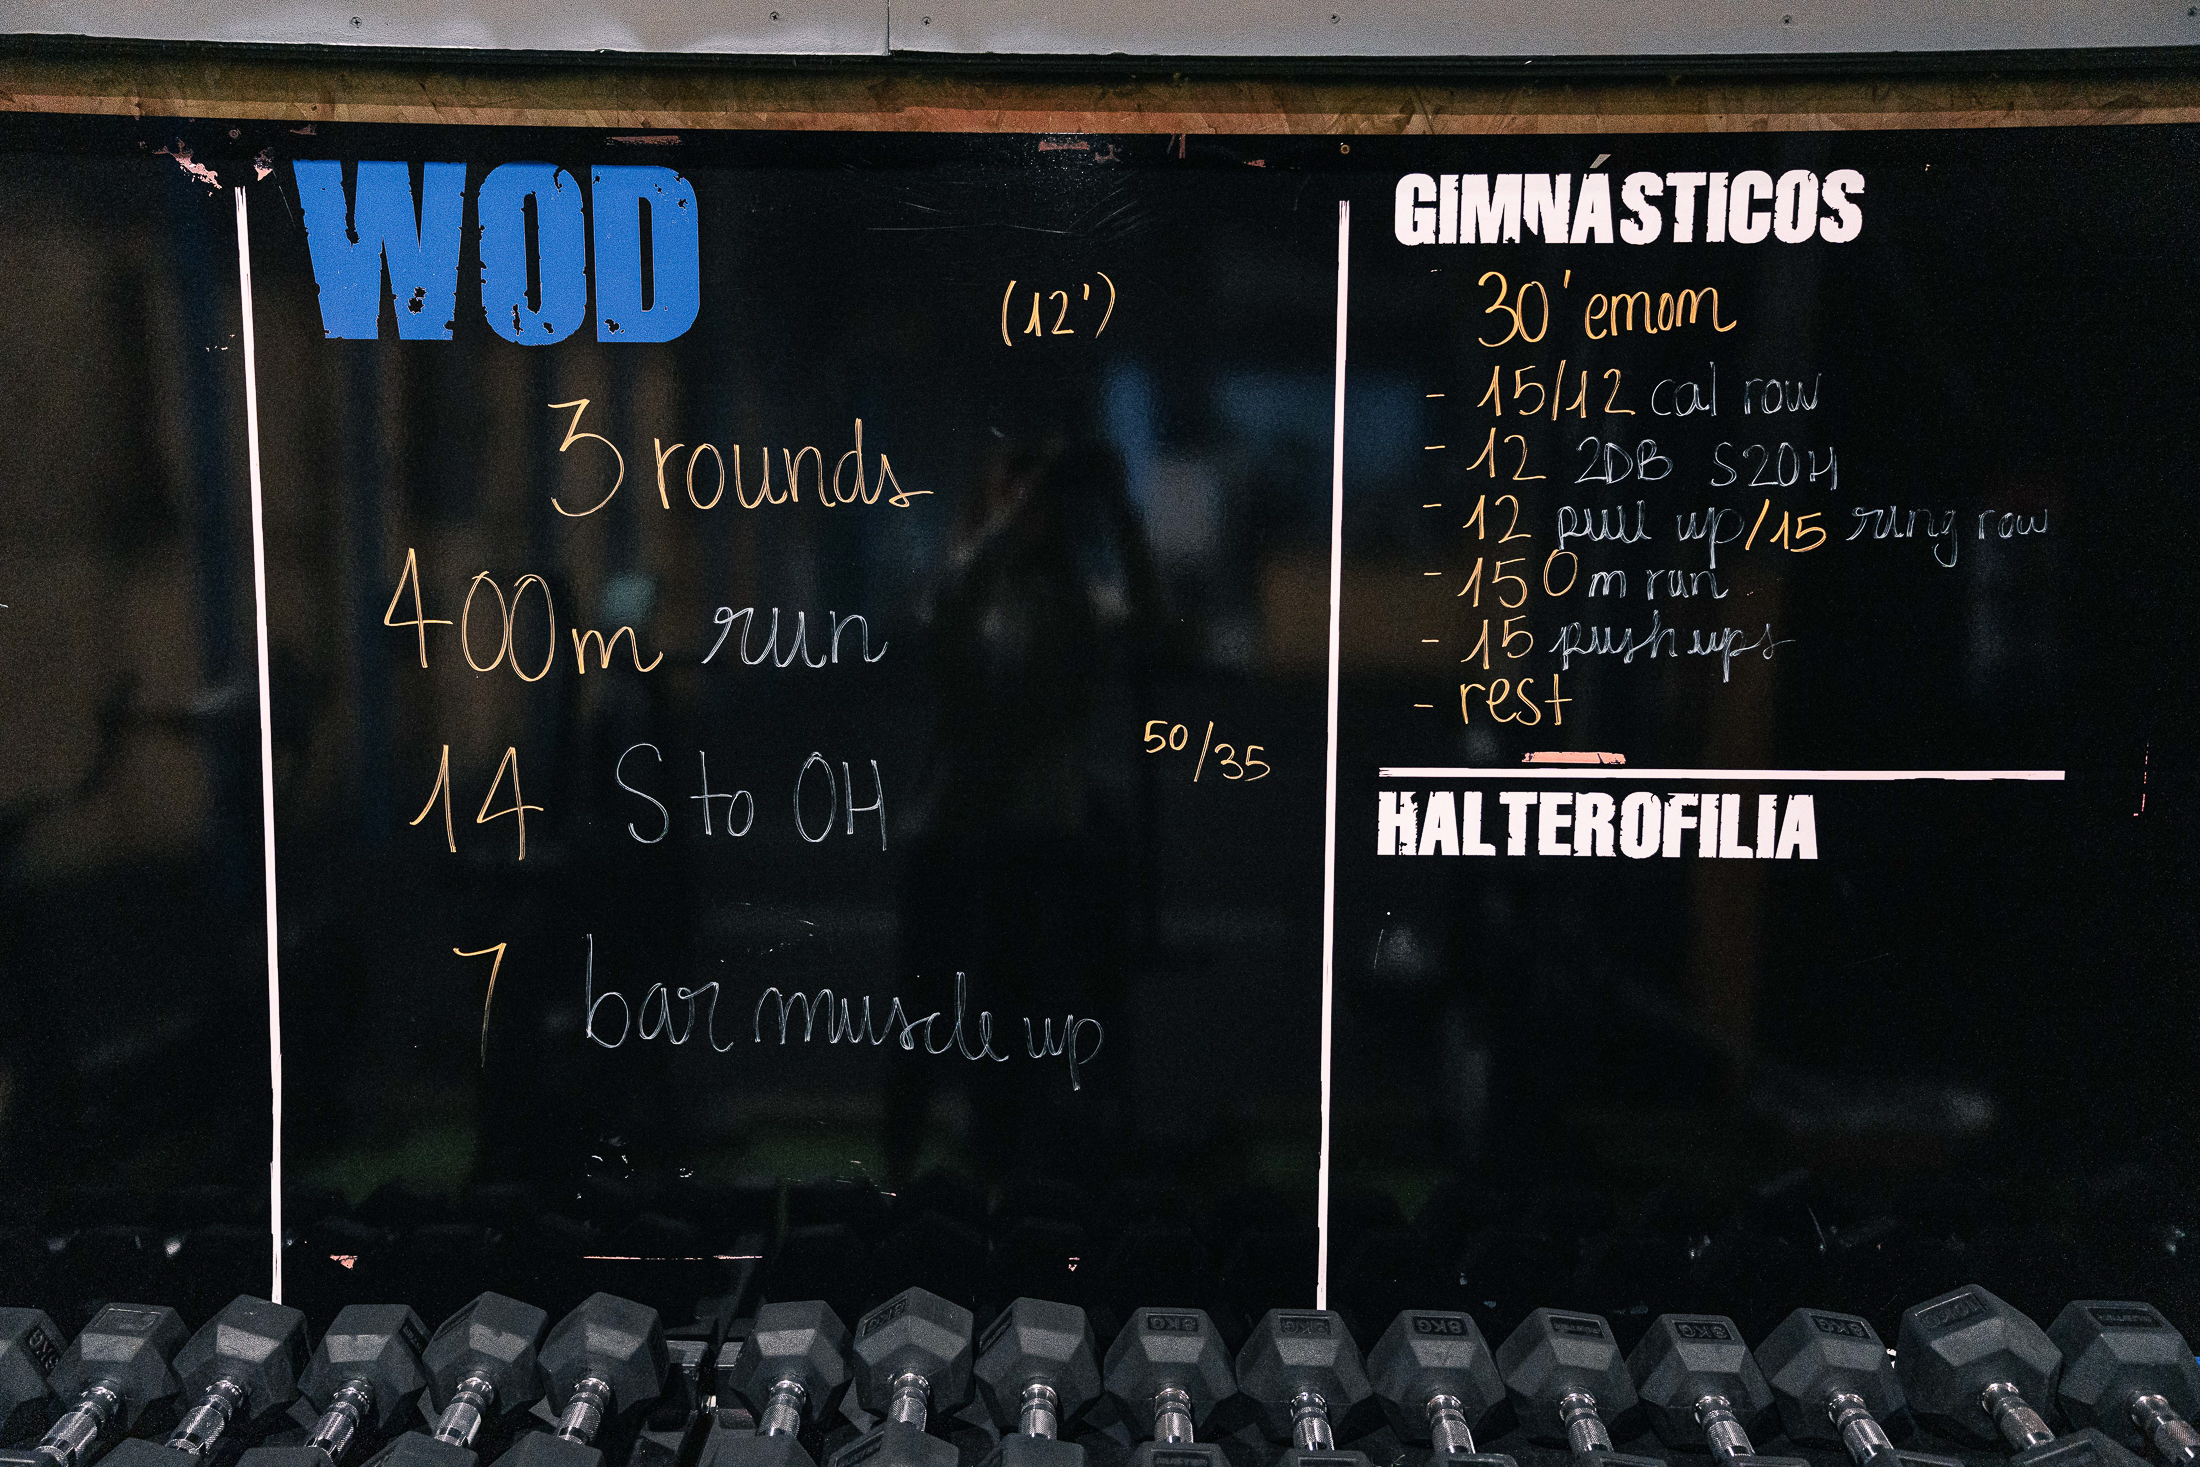 WOD
(12')
3 rounds
400m run
14 S to OH 50/35
7 bar muscle up
GIMNÁSTICOS
30' emom
- 15/12 cal row
- 12 2DB S2OH
- 12 pull up/15 ring row
- 150m run
- 15 push ups
- rest
HALTEROFILIA
8KG
8KG
8KG
8KG
10KG